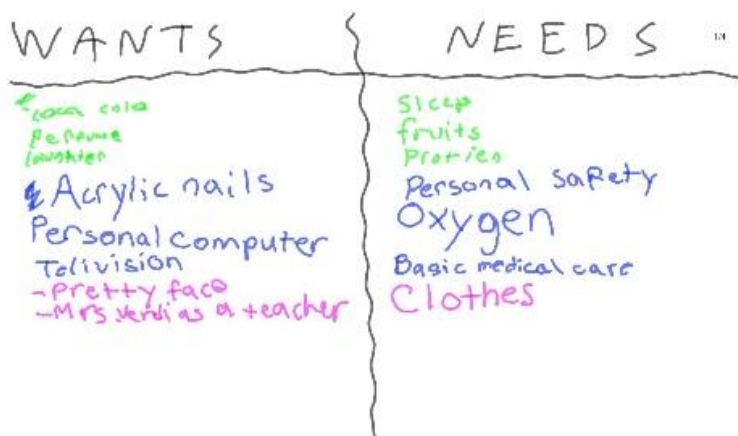 WANTS
NEEDS
1/1
coca cola
Perfume
laughter
Acrylic nails
Personal computer
Telivision
-Pretty face
-Mrs. Verdi as a teacher
Sleep
fruits
Protien
Personal safety
Oxygen
Basic medical care
Clothes